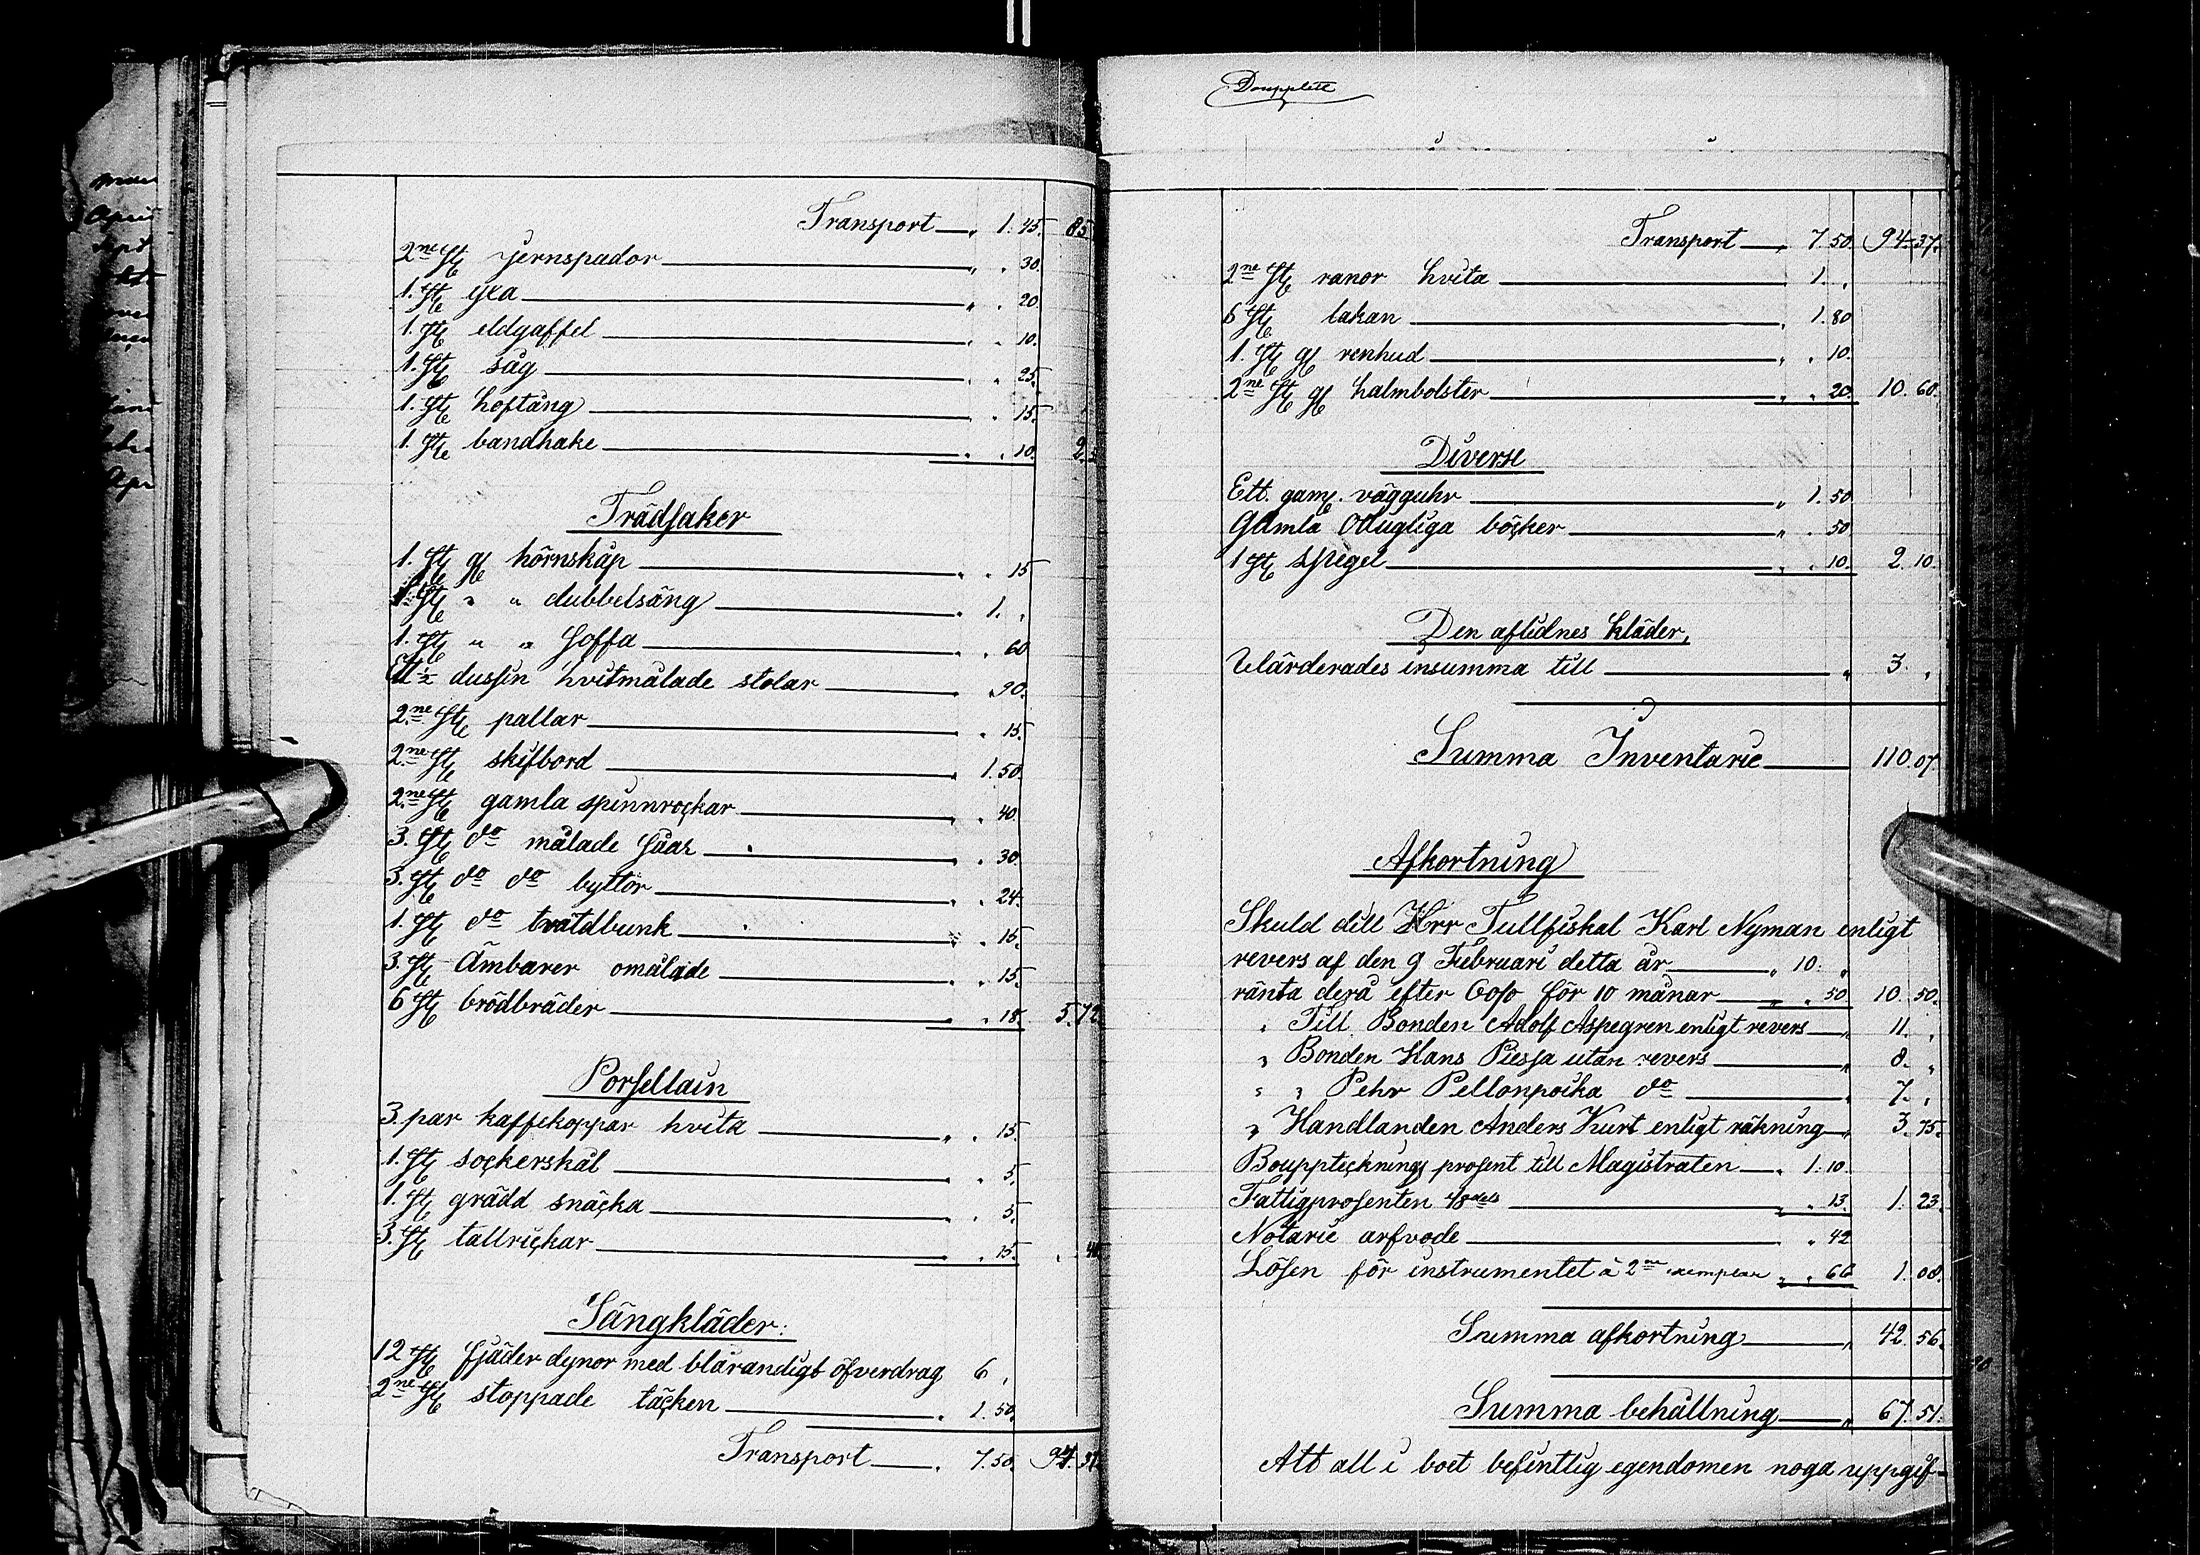 Transport — „ 1. 45. 85.
2ne St. jernspador — „ „ 30.
1. St. yxa — „ „ 20
1. St. eldgaffel — „ „ 10.
1. St. såg — „ „ 25.
1. St. hoftång — „ „ 15.
1. St. bandhake — „ „ 10. 2.
Trädsaker
1. St. gl hörnskåp — „ „ 15
1. St. „ „ dubbelsäng — „ 1. „
1. St. „ „ Soffa — „ „ 60
Ett ½ dussin hvitmålade stolar — „ „ 90.
2ne St. pallar — „ „ 15.
2ne St. skifbord — „ 1. 50.
2ne St. gamla spinnrockar — „ „ 40.
3. St. do målade Såar — „ „ 30.
3. St. do do byttor — „ „ 24.
1. St. do tvatdbunk — „ „ 15.
3. St. Ämbarer omålade — „ „ 15.
6 St. brödbräder — „ „ 18. 5. 72
Porsellain
3. par kaffekoppar hvita — „ „ 15.
1. St. sockerskål — „ „ 5.
1. St. grädd snäcka — „ „ 5.
3. St. tallrickar — „ „ 15. „ 40
Sängkläder:
12 St. fjäder dynor med blårandigt öfverdrag 6 „
2ne St. stoppade täcken — „ 1. 50.
Transport — „ 7. 50. 94. 37.
Doupplett
Transport — „ 7. 50. 94. 37.
2ne St. ranor hvita — „ 1. „
6 St. lakan — „ 1. 80
1. St. gl renhud — „ „ 10.
2ne St. gl halmbolster — „ „ 20. 10. 60.
Diverse
Ett. gaml. vägguhr — „ 1. 50.
Gamla Odugliga böcker — „ „ 50.
1 St. spegel — „ „ 10. 2. 10.
Den aflidnes kläder,
Wärderades insumma till — „ 3. „
Summa Inventarie — 110. 07.
Afkortning
Skuld till Herr Tullfiskal Karl Nyman enligt
revers af den 9 Februari detta år — „ 10. „
ränta derå efter 6o/o för 10 månar — „ „ 50. 10. 50.
„ Till Bonden Adolf Aspegren enligt revers — „ 11. „
„ Bonden Hans Piessa utan revers — „ 8. „
„ „ Pehr Pellonpoika do — „ 7. „
„ Handlanden Anders Kurt enligt räkning — „ 3. 75.
Bouppteckning prosent till Magistraten — „ 1. 10.
Fattigprosenten ⅛dels — „ „ 13. 1. 23.
Notarie arfvode — „ 42
Lösen för instrumentet à 2ne exemplar „ „ 66 1. 08.
Summa afkortning — „ 42. 56.
Summa behållning — „ 67. 51.
Att all i boet befintlig egendomen noga uppgif-